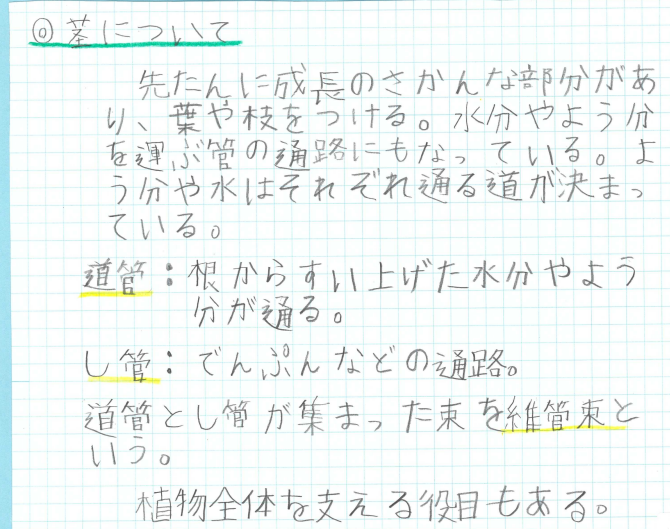 ◎ 茎について
先たんに成長のさかんな部分があ
り、葉や枝をつける。水分やよう分
を運ぶ管の通路にもなっている。よ
う分や水はそれぞれ通る道が決まっ
ている。
道管：根からすい上げた水分やよう
分が通る。
し管：でんぷんなどの通路。
道管とし管が集まった束を維管束と
いう。
植物全体を支える役目もある。